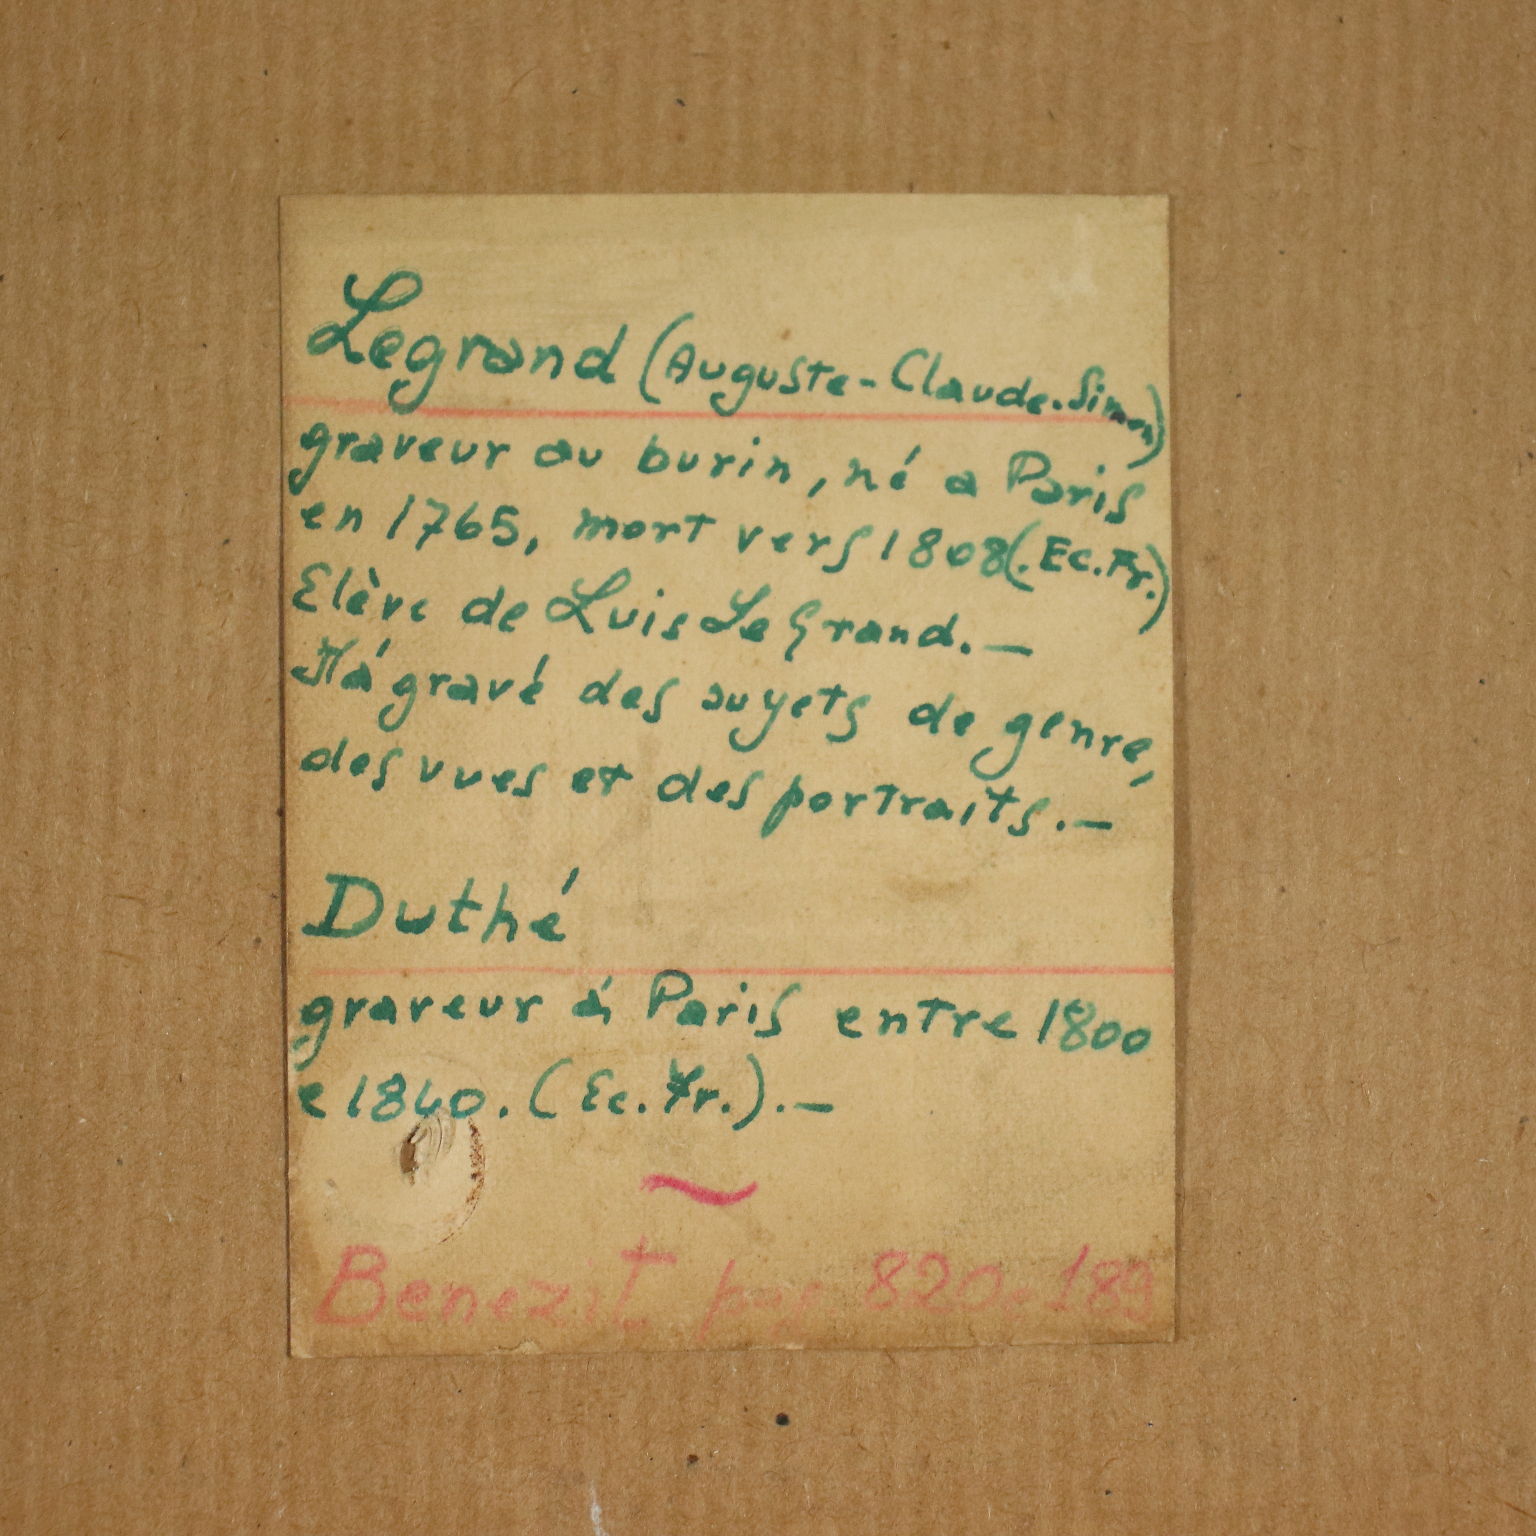 Legrand (Auguste-Claude-Simon)
graveur au burin, né a Paris
en 1765, mort vers 1808 (.Ec.Fr.)
Elève de Luis Le Grand.—
Il á gravé des suyets de genre,
des vues et des portraits.—
Duthé
graveur á Paris entre 1800
e 1840. (Ec. Fr.).—
Benezit pag 820 e 189